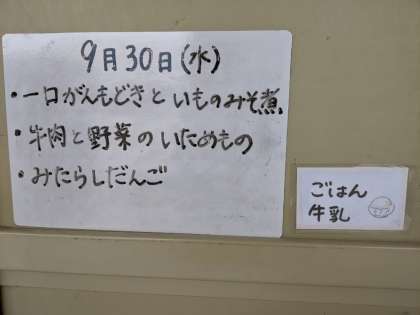 9月30日(水)
・一口がんもどきといものみそ煮
・牛肉と野菜のいためもの
・みたらしだんご
ごはん
牛乳